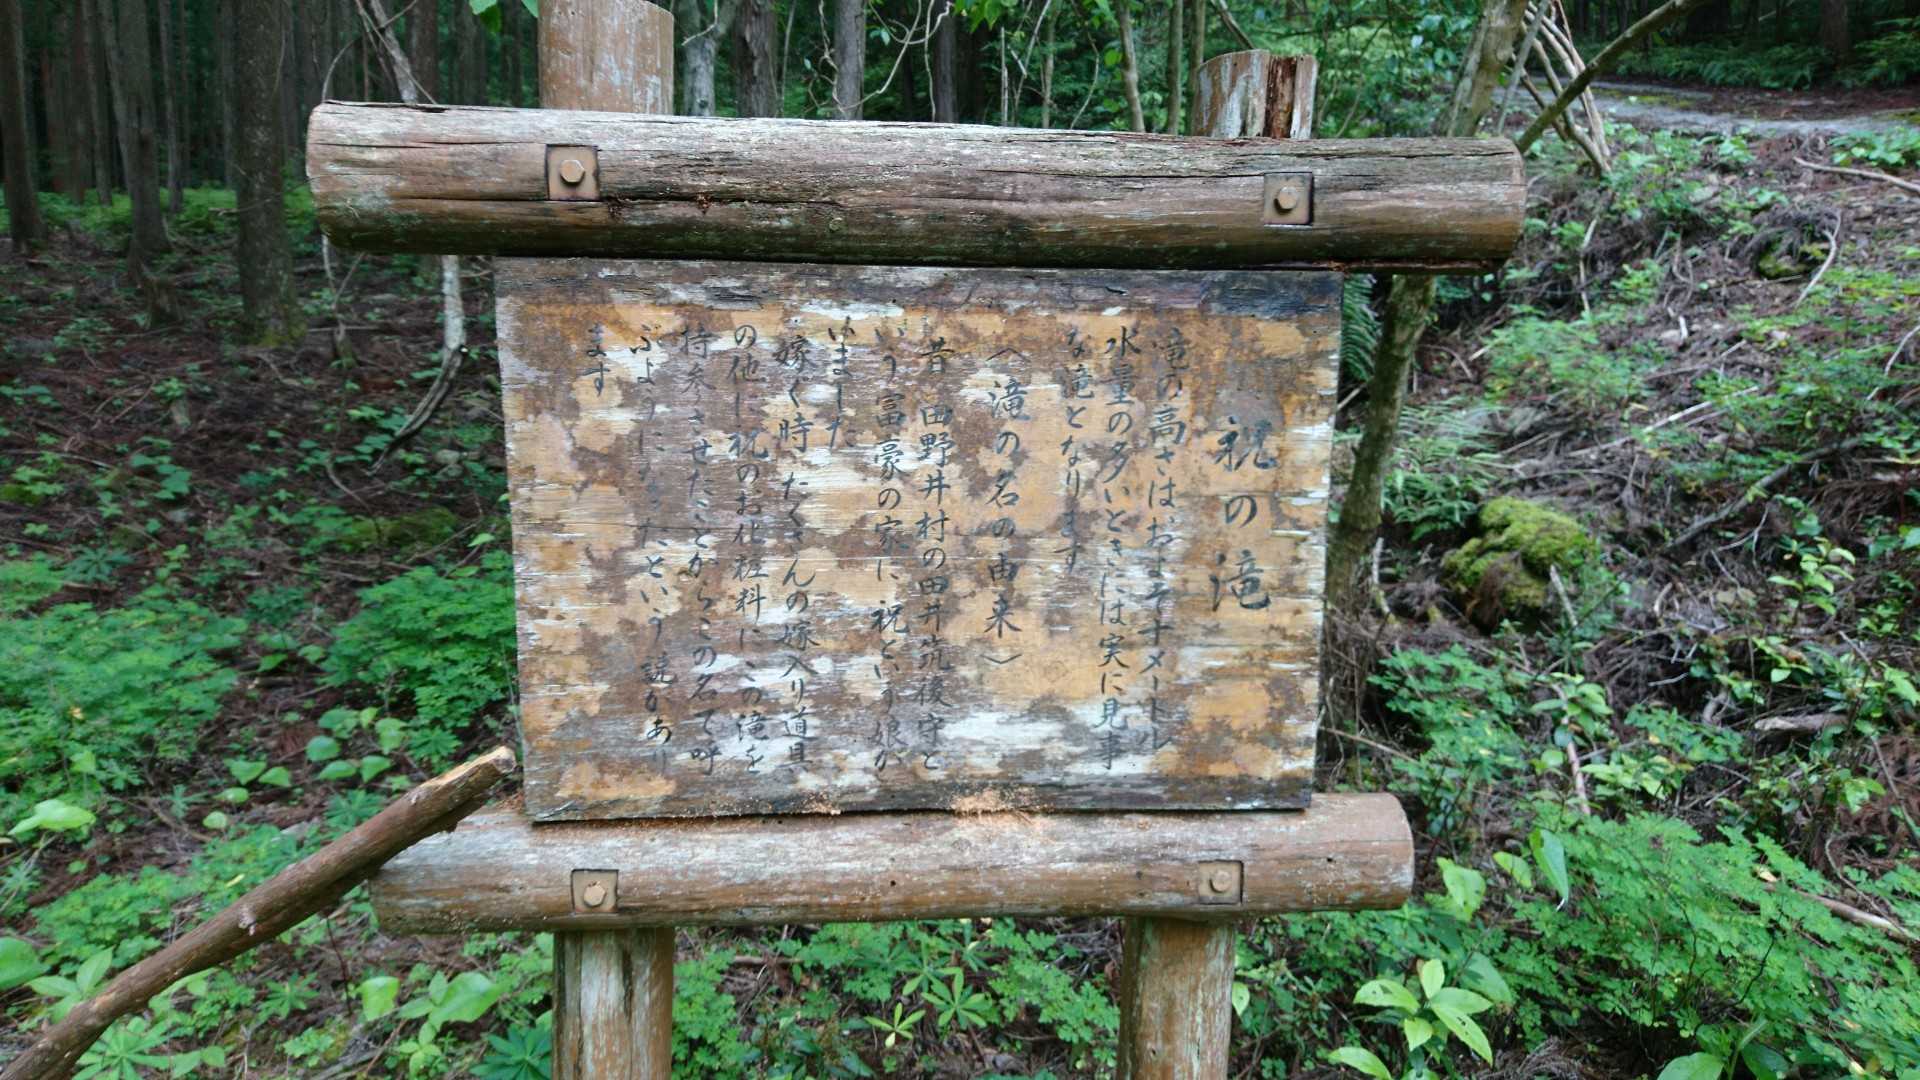 祝の滝
滝の高さはおよそ十メートル
水量の多いときには実に見事
な滝となります
（滝の名の由来）
昔 西野井村の田井筑後守と
いう富豪の家に祝という娘が
いました
嫁ぐ時 たくさんの嫁入り道具
の他に祝のお化粧料にこの滝を
持参させたことからこの名で呼
ぶようになったという説があり
ます